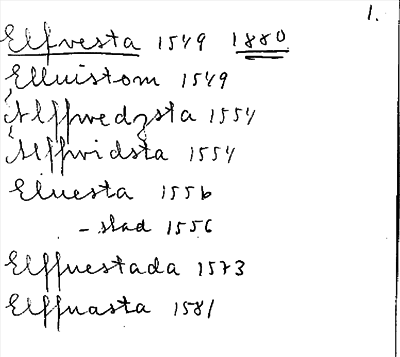 1.
Elfvesta 1549 1880
Elluistom 1549
Älffvedzsta 1554
Älffvidsta 1554
Eluesta 1556
- stad 1556
Elffuestada 1573
Elffuasta 1581